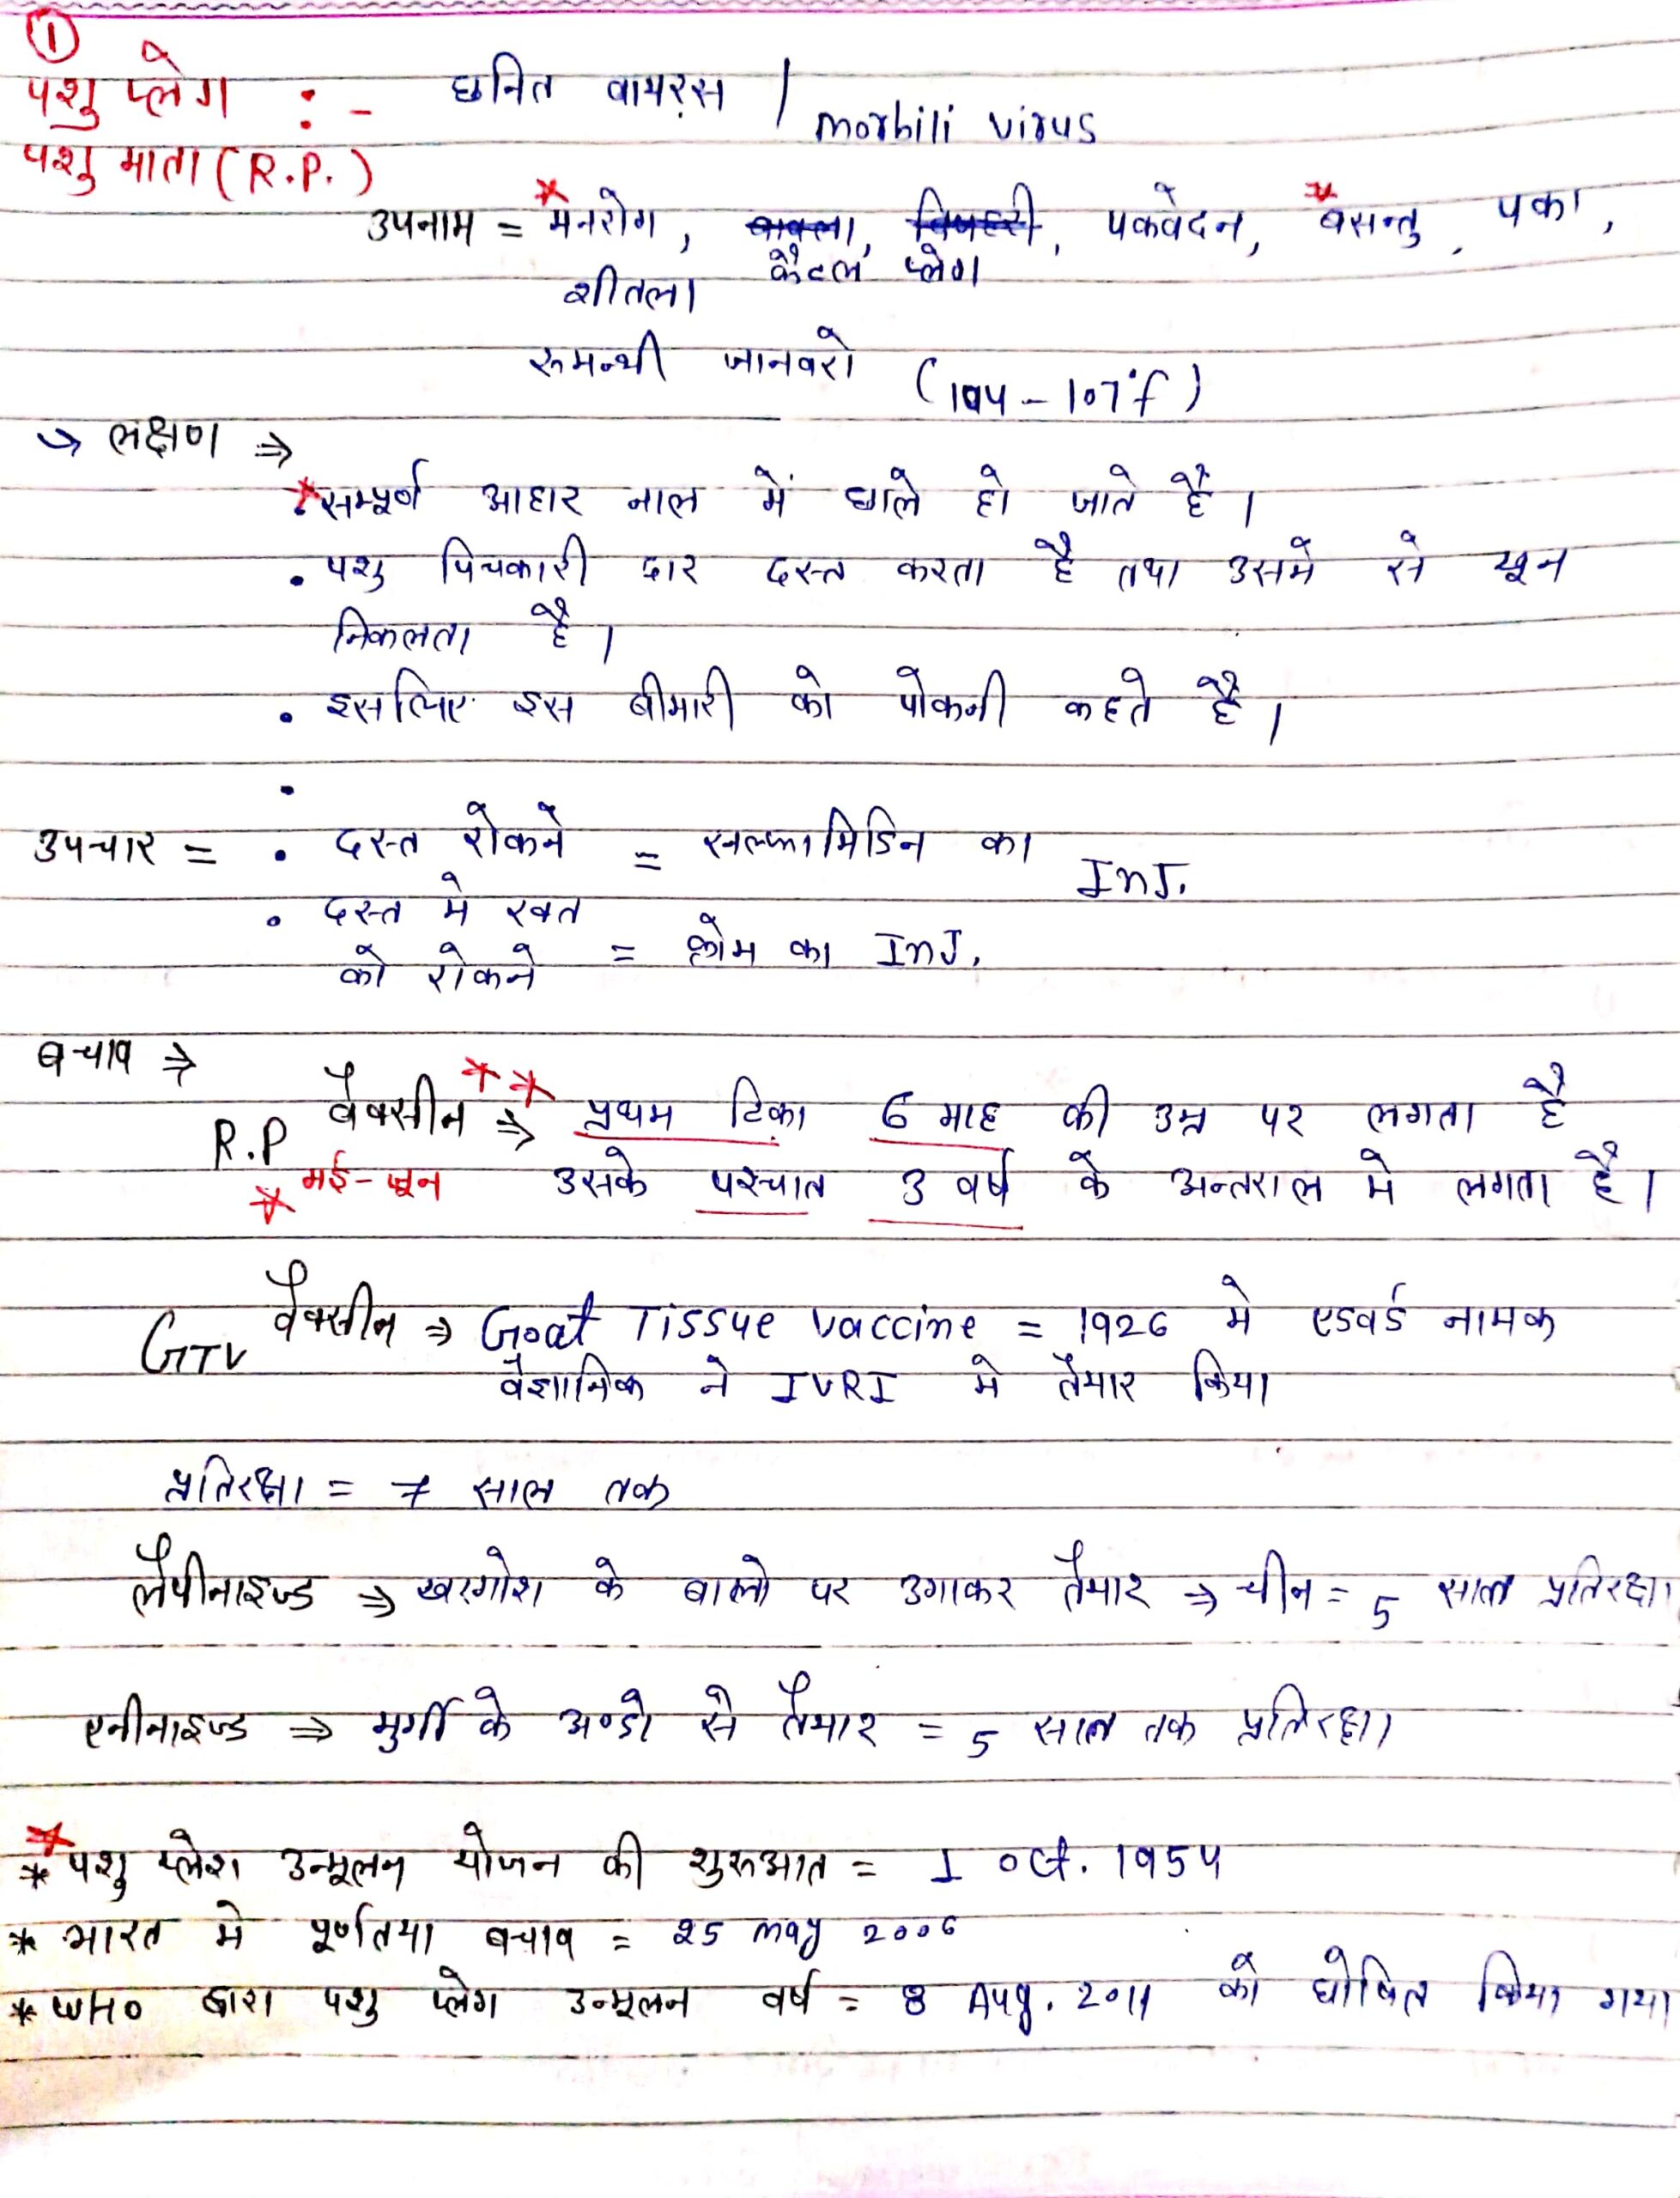 ①
पशु प्लेग :- छनित वायरस / morbili virus
पशु माता (R.P.)
उपनाम = मनरोग, पकवेदन, वसन्तु, पका,
कैटल प्लेग
शीतला
रूमन्थी जानवरो (104-107°f)
→ लक्षण ⇒
• सम्पूर्ण आहार नाल में छाले हो जाते हैं।
• पशु पिचकारी दार दस्त करता है तथा उसमे से खून
निकलता है।
• इसलिए इस बीमारी को पोकनी कहते है।
•
उपचार = • दस्त रोकने = सल्फामिडिन का InJ.
• दस्त मे रक्त
को रोकने = क्रोम का InJ.
बचाव ⇒
R.P वैक्सीन ⇒ प्रथम टिका 6 माह की उम्र पर लगता है
मई-जून उसके पश्चात 3 वर्ष के अन्तराल मे लगता है।
GTV वैक्सीन ⇒ Goat Tissue vaccine = 1926 मे एडवर्ड नामक
वैज्ञानिक ने IVRI मे तैयार किया
प्रतिरक्षा = 7 साल तक
लैपीनाइज्ड ⇒ खरगोश के बालो पर उगाकर तैयार ⇒ चीन = 5 साल प्रतिरक्षा
एनीनाइज्ड ⇒ मुर्गी के अण्डो से तैयार = 5 साल तक प्रतिरक्षा
* पशु प्लेग उन्मूलन योजन की शुरूआत = 1 oct. 1954
* भारत मे पूर्णतिया बचाव = 25 may 2006
* WHO द्वारा पशु प्लेग उन्मूलन वर्ष = 8 Aug. 2011 को घोषित किया गया